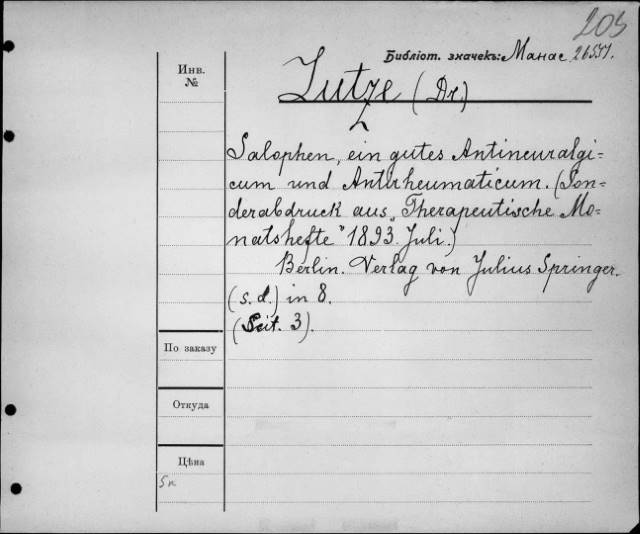 205
Библіот. значекъ: Манас 26551.
Инв.
№
Lutze (Dr.)
Salophen, ein gutes Antineuralgi=
cum und Antirheumaticum. (Son=
derabdruck aus „Therapeutische Mo=
natshefte" 1893. Juli.)
Berlin. Verlag von Julius Springer.
(s. d.) in 8.
(Seit. 3).
По заказу
Откуда
Цѣна
5к